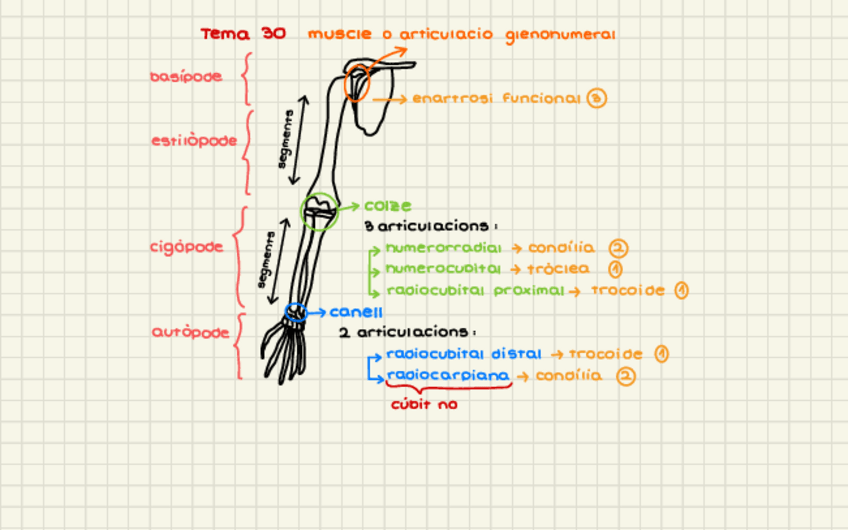 Tema 30 muscle o articulacio glenonumeral
basípode
enartrosi funcional 3
segments
estilòpode
colze
3 articulacions:
cigópode
segments
numerorradial → condília 2
numerocubital → tròclea 1
radiocubital proximal → trocoide 1
canell
autòpode
2 articulacions:
radiocubital distal → trocoide 1
radiocarpiana → condília 2
cúbit no